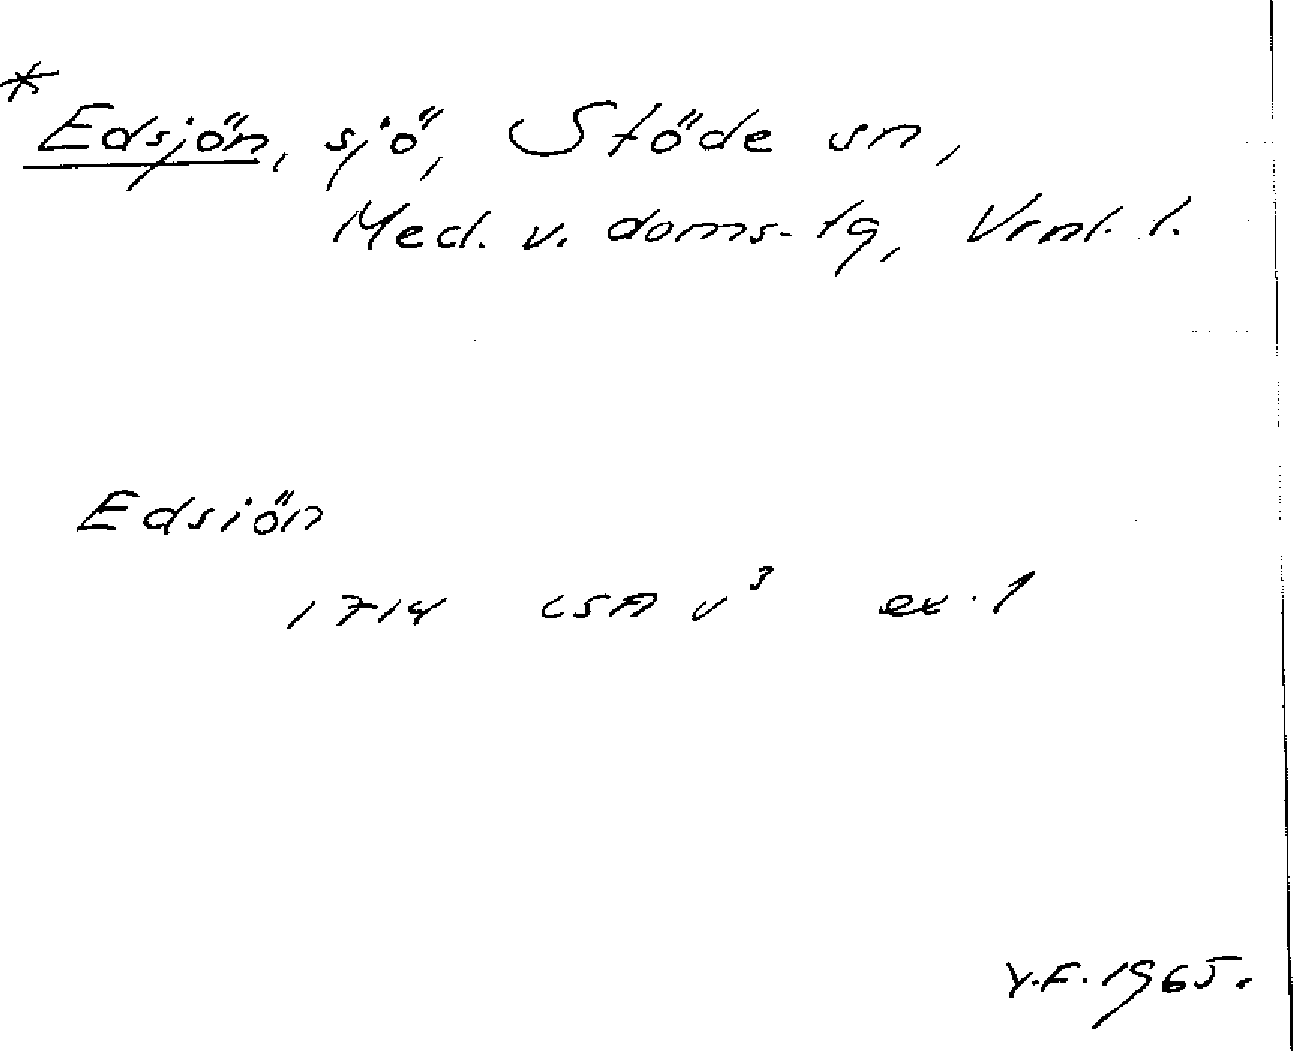 * Edsjön, sjö, Stöde sn,
Med. v. doms. tg, Vrnl. l.
Edsiön
1714 LSA v³ ex. 1
Y.F. 1965.